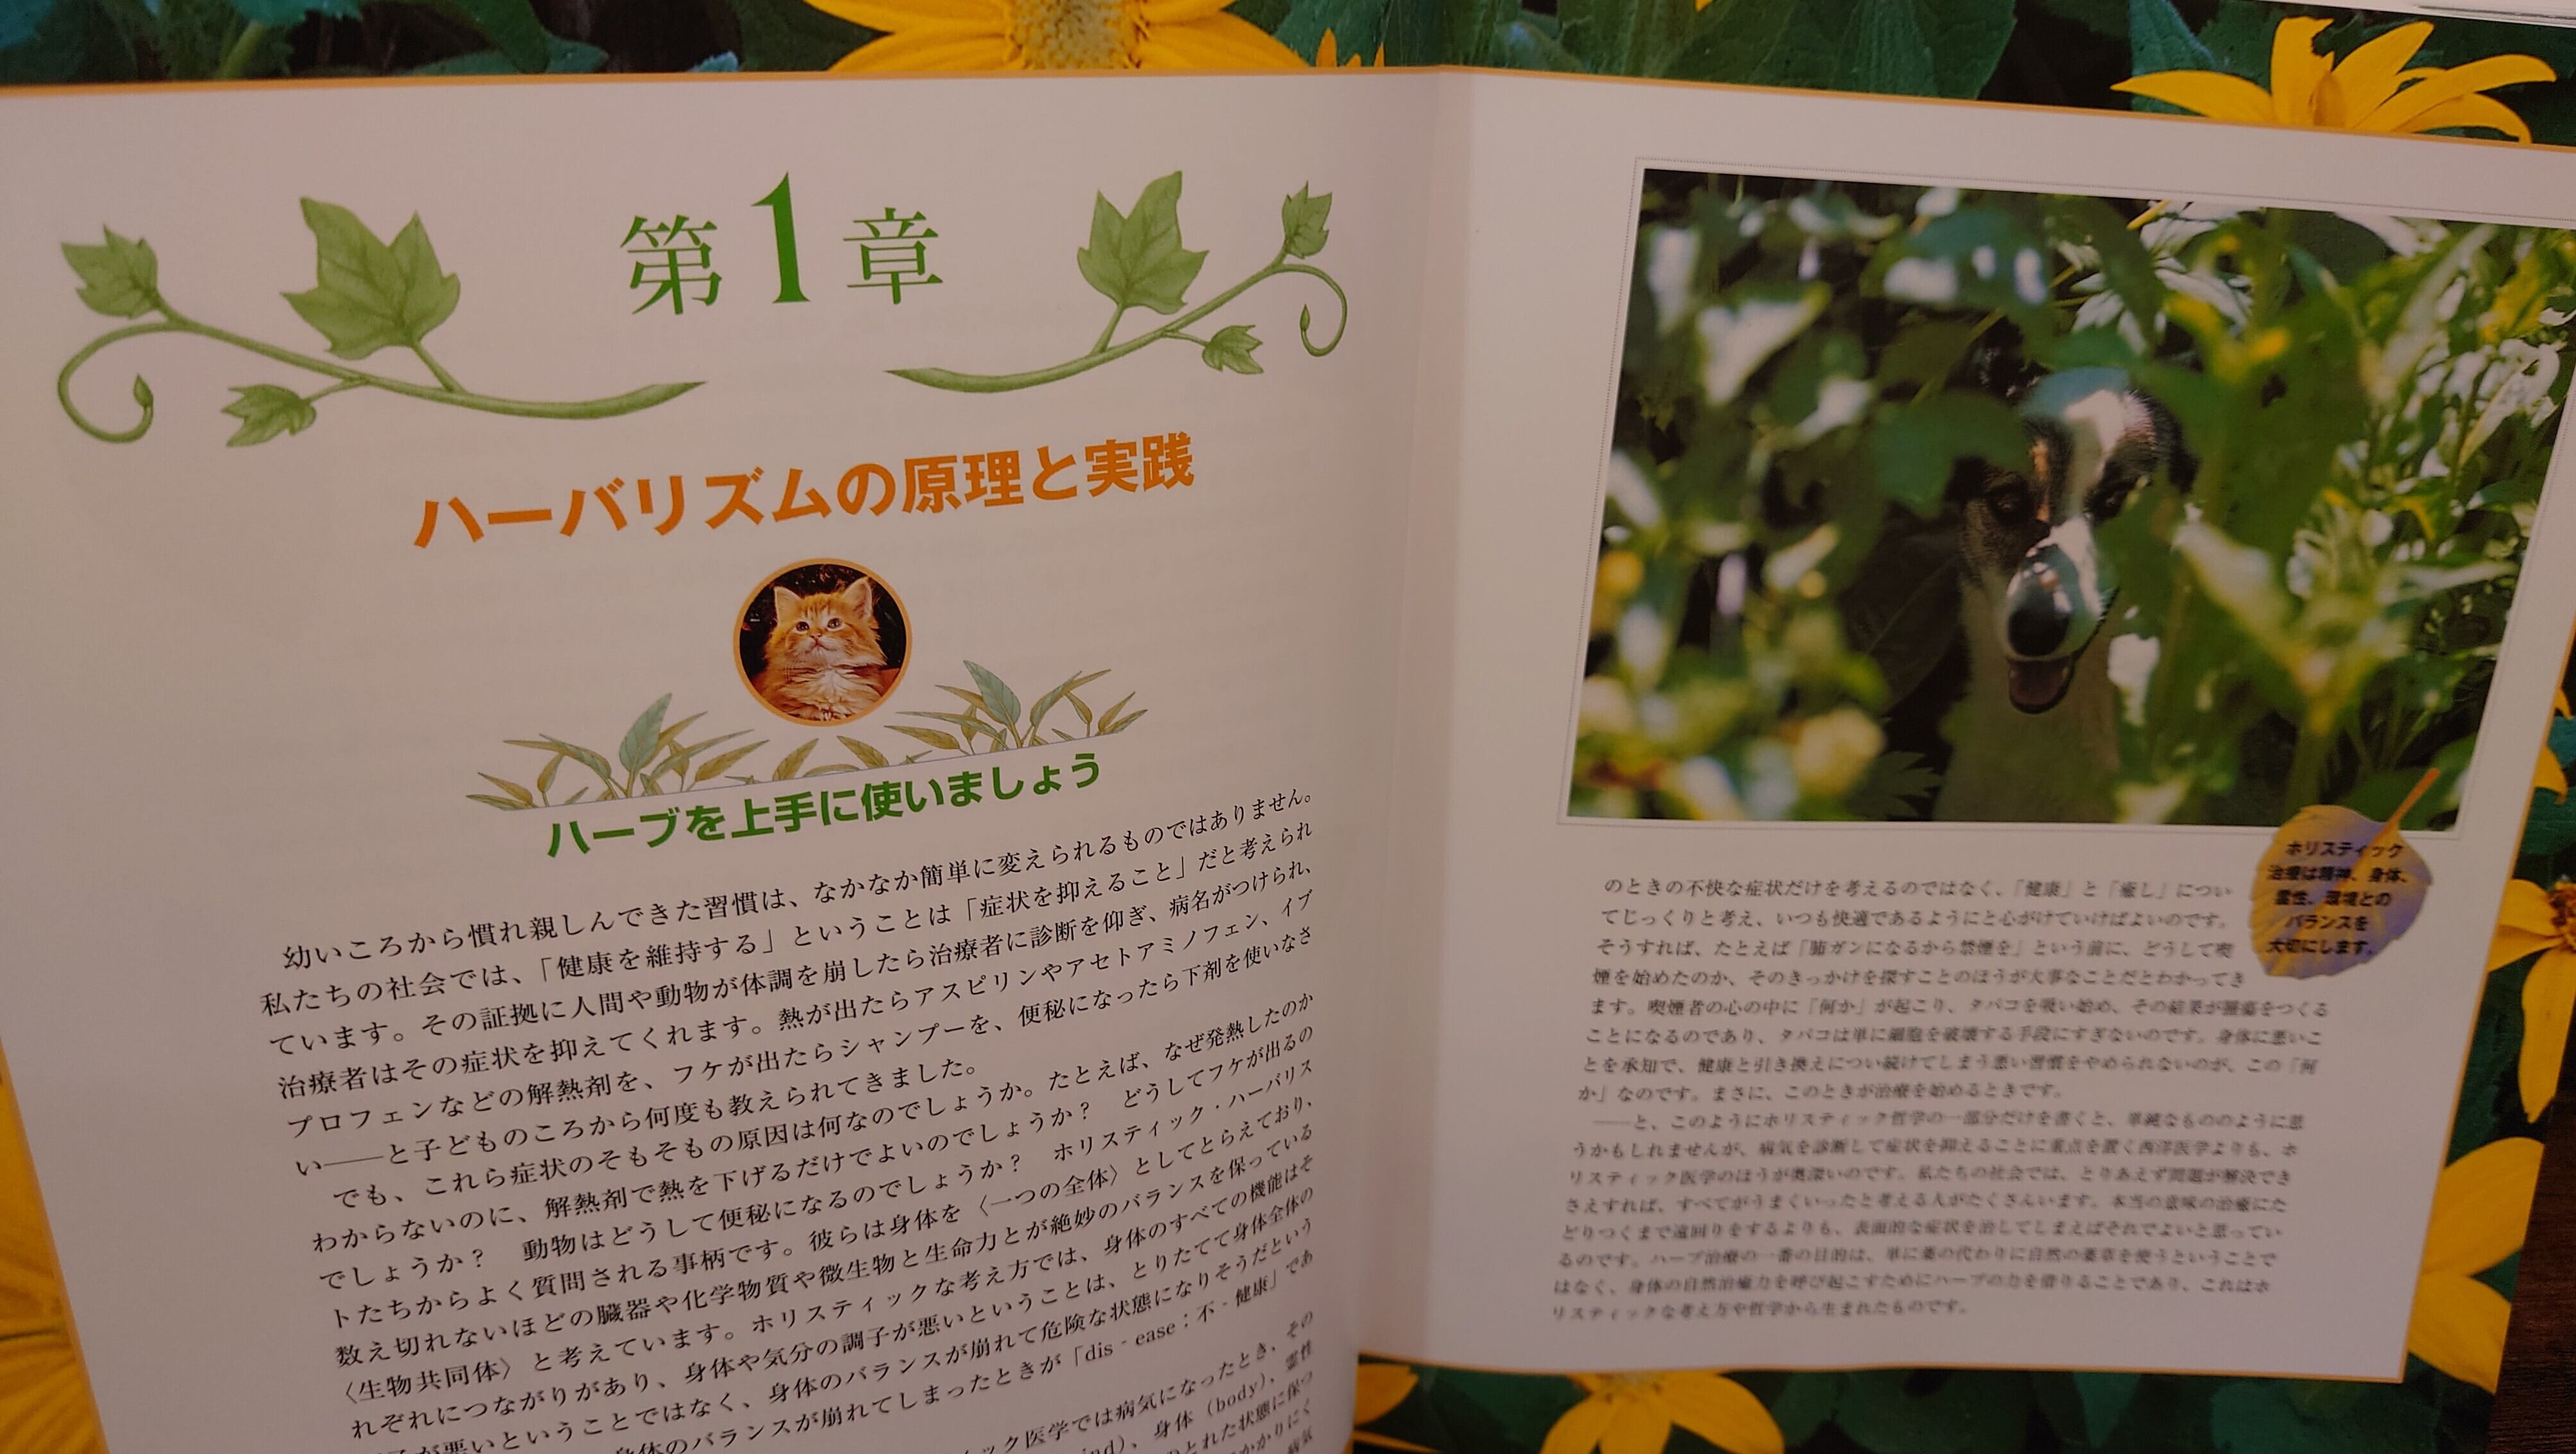 第1章
ハーバリズムの原理と実践
ハーブを上手に使いましょう
幼いころから慣れ親しんできた習慣は、なかなか簡単に変えられるものではありません。
私たちの社会では、「健康を維持する」ということは「症状を抑えること」だと考えられ
ています。その証拠に人間や動物が体調を崩したら治療者に診断を仰ぎ、病名がつけられ、
治療者はその症状を抑えてくれます。熱が出たらアスピリンやアセトアミノフェン、イブ
プロフェンなどの解熱剤を、フケが出たらシャンプーを、便秘になったら下剤を使いなさ
い――と子どものころから何度も教えられてきました。
でも、これら症状のそもそもの原因は何なのでしょうか。たとえば、なぜ発熱したのか
わからないのに、解熱剤で熱を下げるだけでよいのでしょうか? どうしてフケが出るの
でしょうか? 動物はどうして便秘になるのでしょうか? ホリスティック・ハーバリス
トたちからよく質問される事柄です。彼らは身体を〈一つの全体〉としてとらえており、
数え切れないほどの臓器や化学物質や微生物と生命力とが絶妙のバランスを保っている
〈生物共同体〉と考えています。ホリスティックな考え方では、身体のすべての機能はそ
れぞれにつながりがあり、身体や気分の調子が悪いということは、とりたてて身体全体の
が悪いということではなく、身体のバランスが崩れて危険な状態になりそうだという
身体のバランスが崩れてしまったときが「dis‐ease：不‐健康」であ
ック医学では病気になったとき、その
nd)、身体（body）、霊性
のとれた状態に保つ
かかりにく
病気
のときの不快な症状だけを考えるのではなく、「健康」と「癒し」につい
てじっくりと考え、いつも快適であるようにと心がけていけばよいのです。
そうすれば、たとえば「肺ガンになるから禁煙を」という前に、どうして喫
煙を始めたのか、そのきっかけを探すことのほうが大事なことだとわかってき
ます。喫煙者の心の中に「何か」が起こり、タバコを吸い始め、その結果が腫瘍をつくる
ことになるのであり、タバコは単に細胞を破壊する手段にすぎないのです。身体に悪いこ
とを承知で、健康と引き換えについ続けてしまう悪い習慣をやめられないのが、この「何
か」なのです。まさに、このときが治療を始めるときです。
――と、このようにホリスティック哲学の一部分だけを書くと、単純なもののように思
うかもしれませんが、病気を診断して症状を抑えることに重点を置く西洋医学よりも、ホ
リスティック医学のほうが奥深いのです。私たちの社会では、とりあえず問題が解決でき
さえすれば、すべてがうまくいったと考える人がたくさんいます。本当の意味の治療にた
どりつくまで遠回りをするよりも、表面的な症状を治してしまえばそれでよいと思ってい
るのです。ハーブ治療の一番の目的は、単に薬の代わりに自然の薬草を使うということで
はなく、身体の自然治癒力を呼び起こすためにハーブの力を借りることであり、これはホ
リスティックな考え方や哲学から生まれたものです。
ホリスティック
治療は精神、身体、
霊性、環境との
バランスを
大切にします。